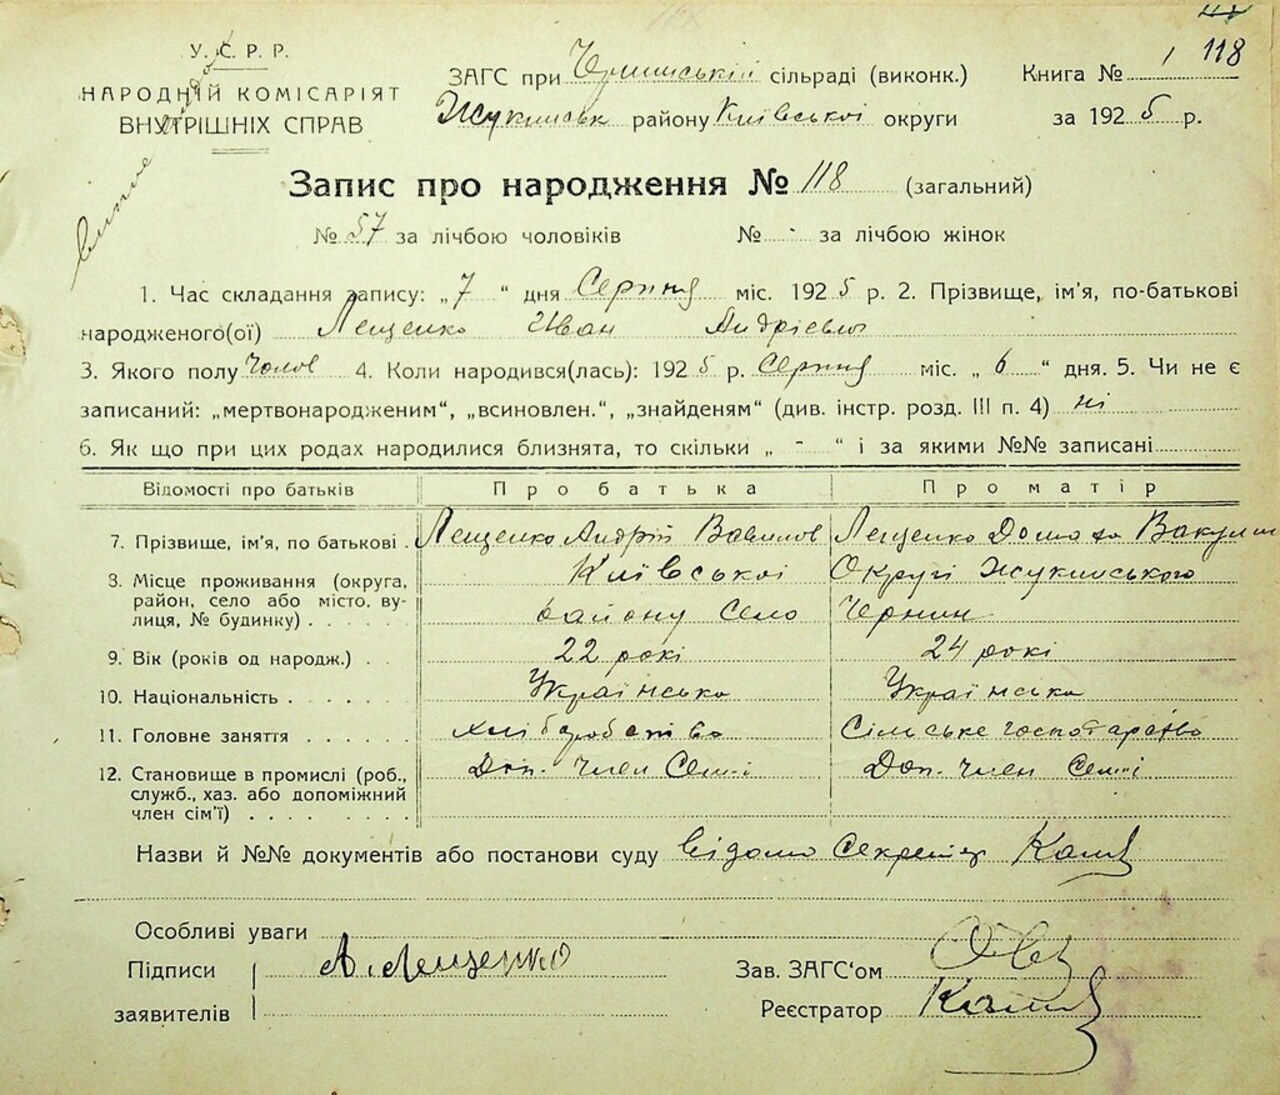 118
У. С. Р. Р.
НАРОДНІЙ КОМІСАРІЯТ
ВНУТРІШНІХ СПРАВ
ЗАГС при сільраді (виконк.) Книга № 1
району Київської округи за 1925 р.
Запис про народження № 118 (загальний)
№ 57 за лічбою чоловіків № - за лічбою жінок
1. Час складання запису: „7“ дня Серпня міс. 1925 р. 2. Прізвище, ім'я, по-батькові
народженого(ої) Лещенко Иван
3. Якого полу Чолов 4. Коли народився(лась): 1925 р. Серпня міс. „6“ дня. 5. Чи не є
записаний: „мертвонародженим“, „всиновлен.“, „знайденям“ (див. інстр. розд. III п. 4) ні
6. Як що при цих родах народилися близнята, то скільки „ - “ і за якими №№ записані
Відомості про батьків Про батька Про матір
7. Прізвище, ім'я, по батькові Лещенко Андрій Вавилов Лещенко
8. Місце проживання (округа, Київської Округі Жукинського
район, село або місто, ву-
лиця, № будинку) району Село Чернин
9. Вік (років од народж.) 22 рокі 24 рокі
10. Національність Українська Українська
11. Головне заняття хліборобство Сільське господарство
12. Становище в промислі (роб., Доп. член Семї Доп. член Семї
служб., хаз. або допоміжний
член сім'ї)
Назви й №№ документів або постанови суду відомо Секретар
Особливі уваги
Підписи А. Лещенко Зав. ЗАГС'ом
заявителів Реєстратор